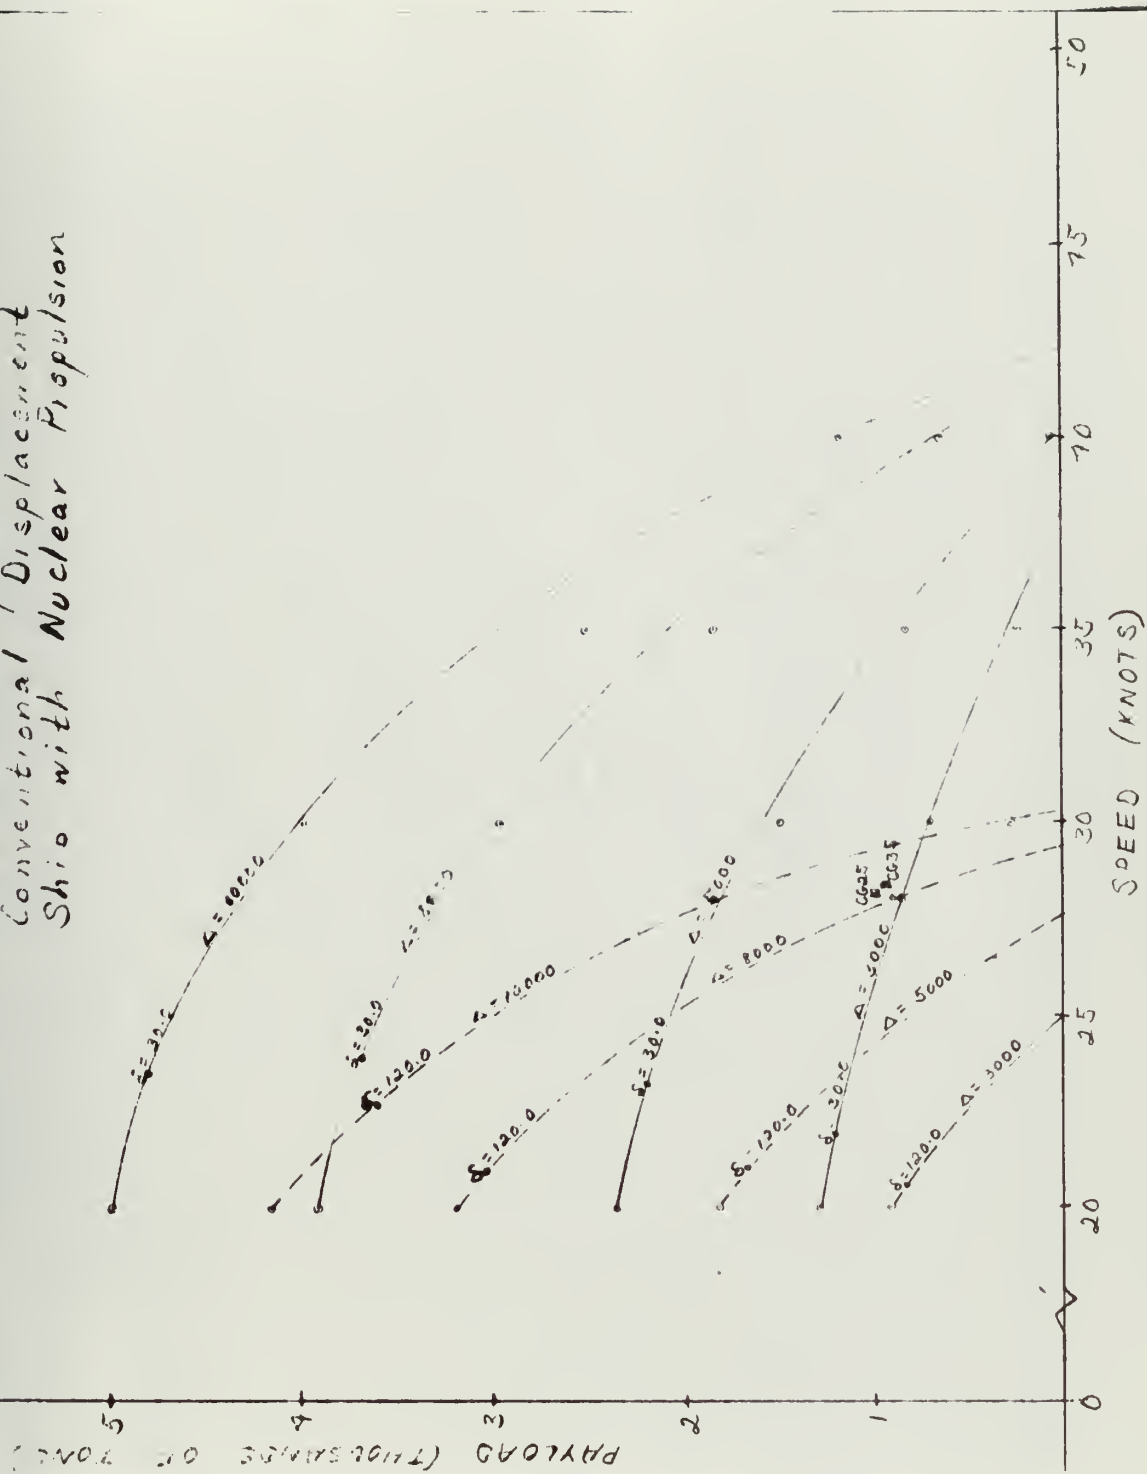 Conventional Displacement
Ship with Nuclear Propulsion
PAYLOAD (THOUSANDS OF TONS)
5
4
3
2
1
0
20
25
30
35
40
45
50
SPEED (KNOTS)
δ=30.0
Δ=10000
δ=30.0
Δ=8000
δ=120.0
Δ=10,000
δ=120.0
Δ=8000
δ=30.0
Δ=5000
δ=120.0
Δ=5000
δ=30.0
Δ=3000
δ=120.0
Δ=3000
CG25
CG35